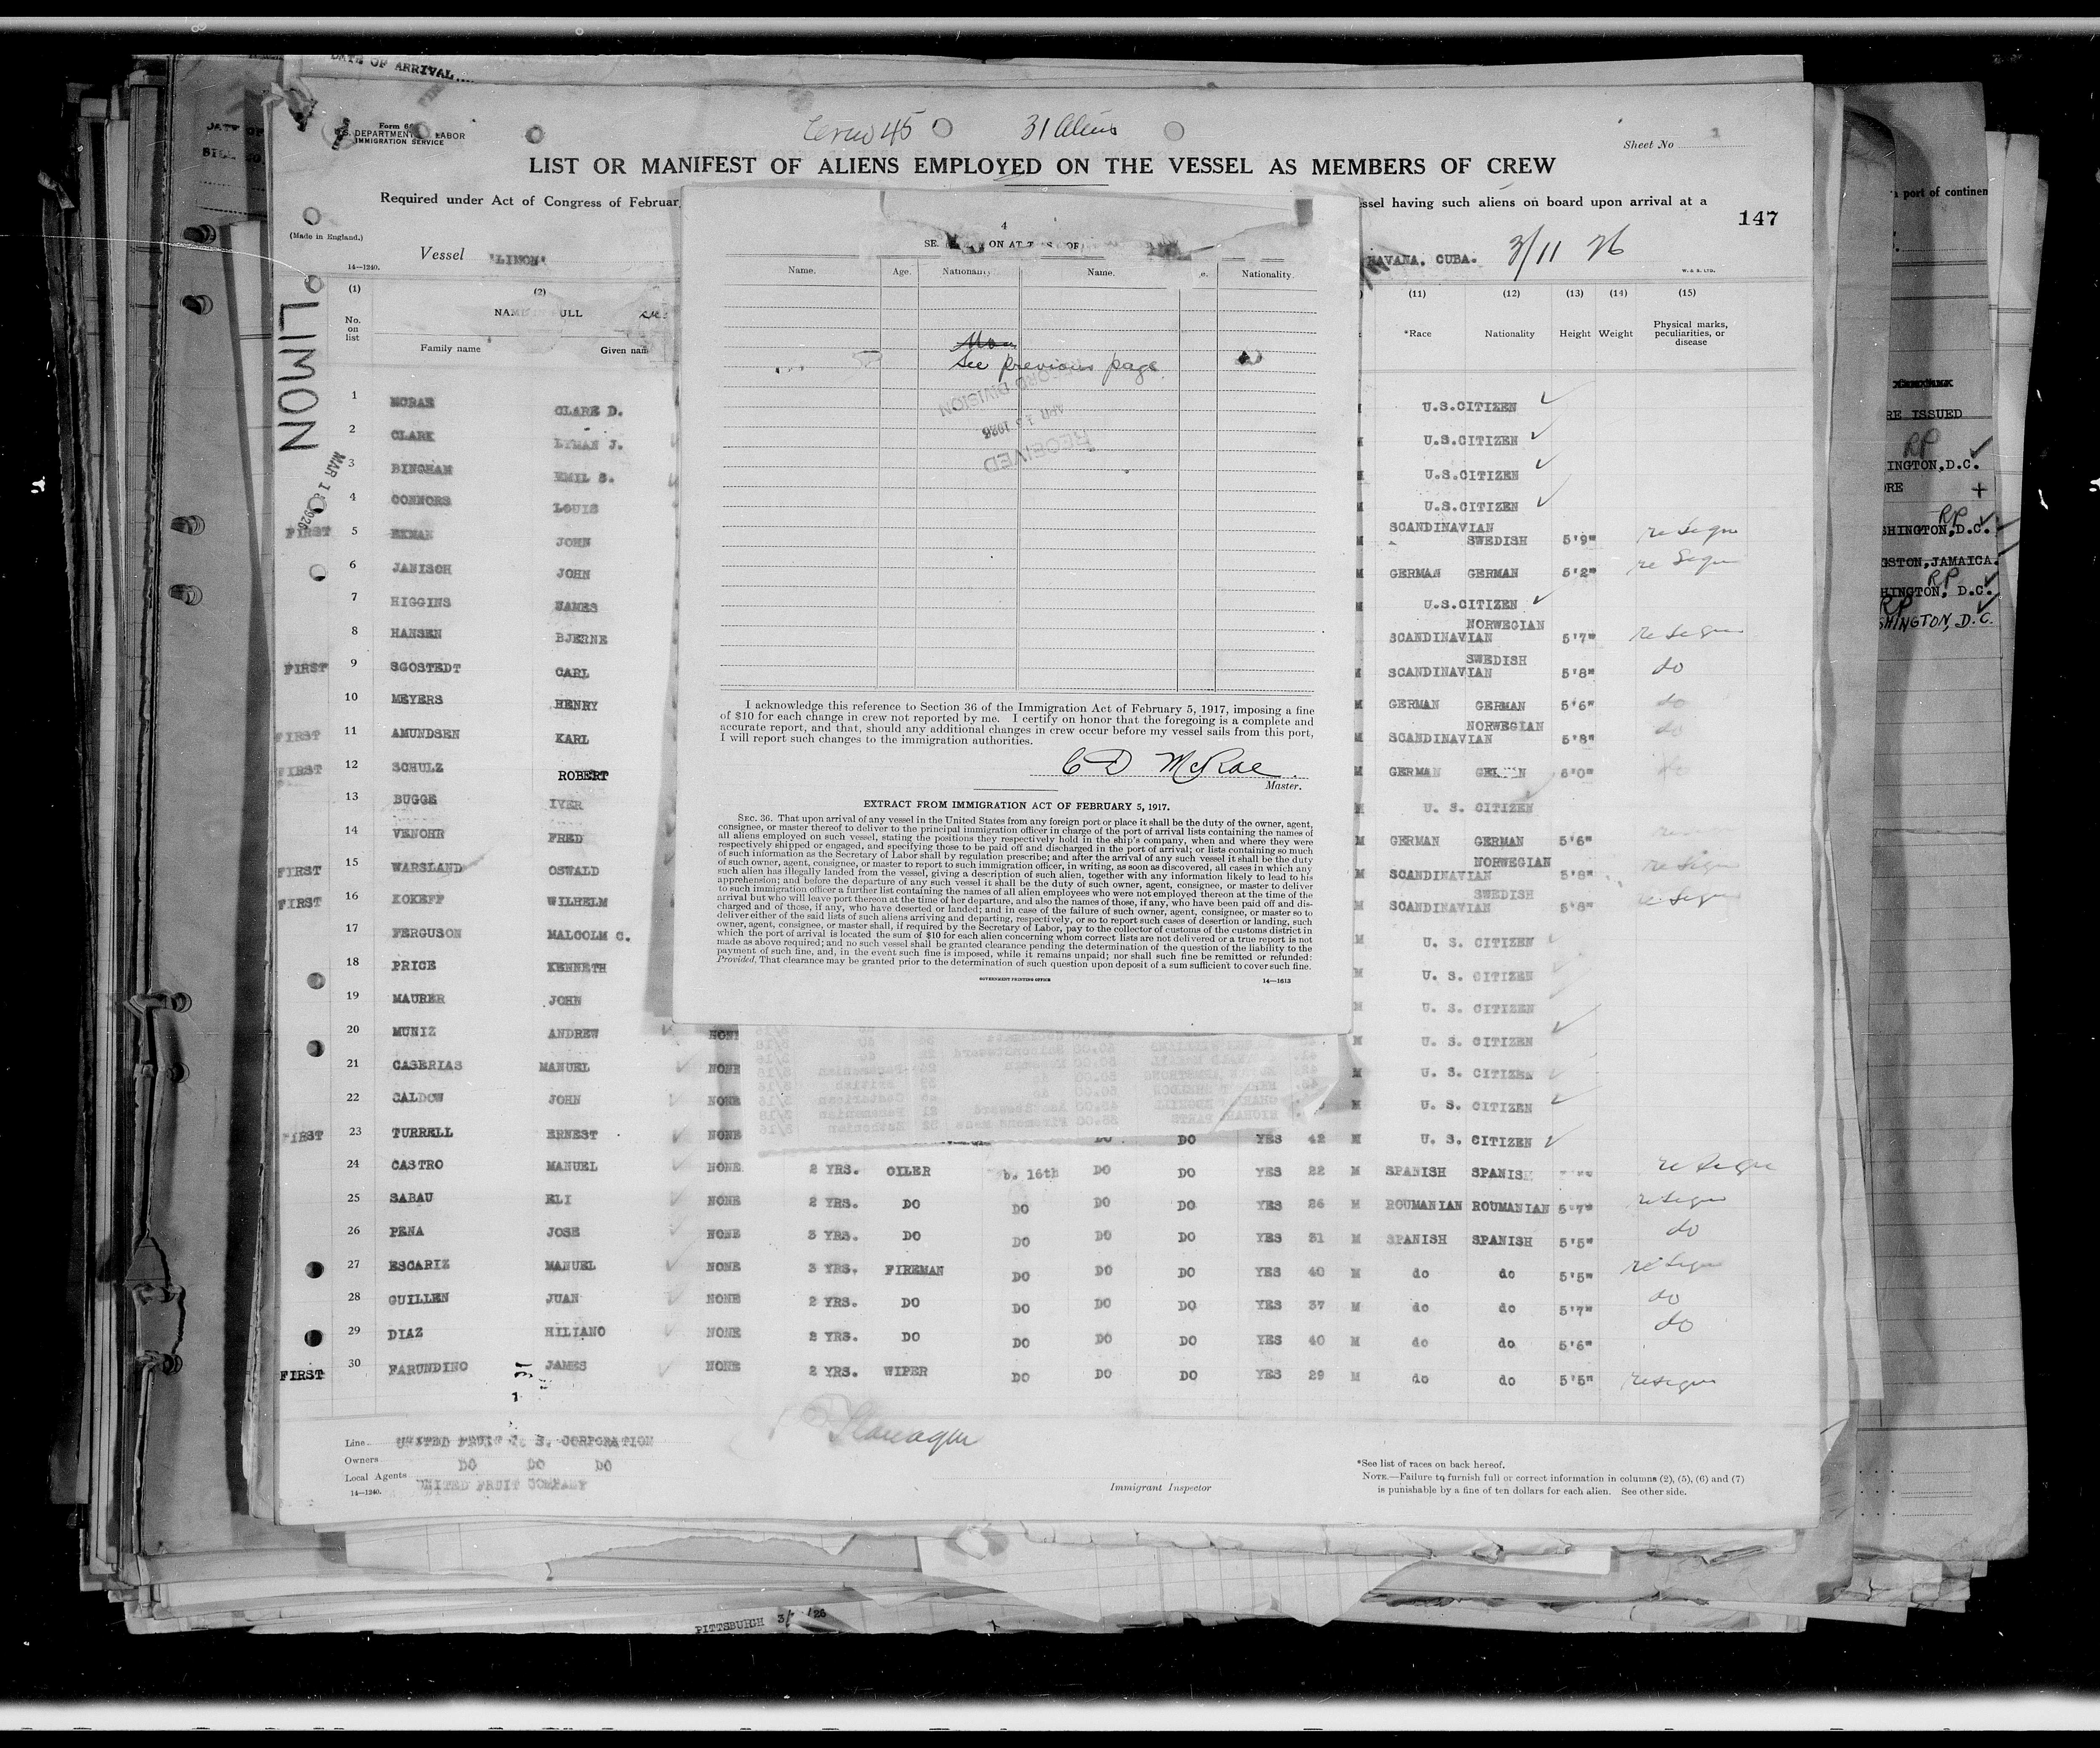 DATE OF ARRIVAL....
Form 68
U.S. DEPARTMENT LABOR
IMMIGRATION SERVICE
Crew 45 31 Aliens
Sheet No 1
LIST OR MANIFEST OF ALIENS EMPLOYED ON THE VESSEL AS MEMBERS OF CREW
Required under Act of Congress of Februar
ssel having such aliens on board upon arrival at a
147
(Made in England.)
Vessel "LIMON"
HAVANA, CUBA. 3/11 26
14—1240.
W. & S. LTD.
LIMON
(1) (2) (11) (12) (13) (14) (15)
No. on list
Family name Given nam
*Race Nationality Height Weight Physical marks, peculiarities, or disease
1 MCRAE CLARE D. M U.S.CITIZEN
2 CLARK LYMAN J. M U.S.CITIZEN
3 BINGHAM EMIL S. U.S.CITIZEN
4 CONNORS LOUIS M U.S.CITIZEN
FIRST 5 EKMAN JOHN M SCANDINAVIAN SWEDISH 5'9"
6 JANISCH JOHN M GERMAN GERMAN 5'2"
7 HIGGINS JAMES M U.S.CITIZEN
8 HANSEN BJERNE SCANDINAVIAN NORWEGIAN 5'7"
FIRST 9 SGOSTEDT CARL M SCANDINAVIAN SWEDISH 5'8" do
10 MEYERS HENRY M GERMAN GERMAN 5'6" do
FIRST 11 AMUNDSEN KARL M SCANDINAVIAN NORWEGIAN 5'8" do
FIRST 12 SCHULZ ROBERT M GERMAN
13 BUGGE IVER M U. S. CITIZEN
14 VENOHR FRED M GERMAN GERMAN 5'6"
FIRST 15 WARSLAND OSWALD M SCANDINAVIAN NORWEGIAN 5'8"
FIRST 16 KOKEFF WILHELM M SCANDINAVIAN SWEDISH 5'8"
17 FERGUSON MALCOLM C. M U. S. CITIZEN
18 PRICE KENNETH M U. S. CITIZEN
19 MAURER JOHN M U. S. CITIZEN
20 MUNIZ ANDREW NONE M U. S. CITIZEN
21 CASERIAS MANUEL NONE M U. S. CITIZEN
22 CALDOW JOHN NONE M U. S. CITIZEN
FIRST 23 TURRELL ERNEST NONE DO DO YES 42 M U. S. CITIZEN
24 CASTRO MANUEL NONE 2 YRS. OILER b. 16th DO DO YES 22 M SPANISH SPANISH
25 SABAU ELI NONE 2 YRS. DO DO DO DO YES 26 M ROUMANIAN ROUMANIAN 5'7"
26 PENA JOSE NONE 3 YRS. DO DO DO DO YES 31 M SPANISH SPANISH 5'5" do
27 ESCARIZ MANUEL NONE 3 YRS. FIREMAN DO DO DO YES 40 M do do 5'5"
28 GUILLEN JUAN NONE 2 YRS. DO DO DO DO YES 37 M do do 5'7" do
29 DIAZ HILIANO NONE 2 YRS. DO DO DO DO YES 40 M do do 5'6" do
FIRST 30 FARUNDINO JAMES NONE 2 YRS. WIPER DO DO DO YES 29 M do do 5'5"
Line UNITED FRUIT S. S. CORPORATION
Owners DO DO DO
Local Agents UNITED FRUIT COMPANY
14—1240.
Flanagan
Immigrant Inspector
*See list of races on back hereof.
NOTE.—Failure to furnish full or correct information in columns (2), (5), (6) and (7)
is punishable by a fine of ten dollars for each alien. See other side.
4
Name. Age. Nationality Name. Nationality.
See previous page
RECORD DIVISION
APR 13 1926
RECEIVED
I acknowledge this reference to Section 36 of the Immigration Act of February 5, 1917, imposing a fine
of $10 for each change in crew not reported by me. I certify on honor that the foregoing is a complete and
accurate report, and that, should any additional changes in crew occur before my vessel sails from this port,
I will report such changes to the immigration authorities.
C D McRae
Master.
EXTRACT FROM IMMIGRATION ACT OF FEBRUARY 5, 1917.
SEC. 36. That upon arrival of any vessel in the United States from any foreign port or place it shall be the duty of the owner, agent,
consignee, or master thereof to deliver to the principal immigration officer in charge of the port of arrival lists containing the names of
all aliens employed on such vessel, stating the positions they respectively hold in the ship's company, when and where they were
respectively shipped or engaged, and specifying those to be paid off and discharged in the port of arrival; or lists containing so much
of such information as the Secretary of Labor shall by regulation prescribe; and after the arrival of any such vessel it shall be the duty
of such owner, agent, consignee, or master to report to such immigration officer, in writing, as soon as discovered, all cases in which any
such alien has illegally landed from the vessel, giving a description of such alien, together with any information likely to lead to his
apprehension; and before the departure of any such vessel it shall be the duty of such owner, agent, consignee, or master to deliver
to such immigration officer a further list containing the names of all alien employees who were not employed thereon at the time of the
arrival but who will leave port thereon at the time of her departure, and also the names of those, if any, who have been paid off and dis-
charged and of those, if any, who have deserted or landed; and in case of the failure of such owner, agent, consignee, or master so to
deliver either of the said lists of such aliens arriving and departing, respectively, or so to report such cases of desertion or landing, such
owner, agent, consignee, or master shall, if required by the Secretary of Labor, pay to the collector of customs of the customs district in
which the port of arrival is located the sum of $10 for each alien concerning whom correct lists are not delivered or a true report is not
made as above required; and no such vessel shall be granted clearance pending the determination of the question of the liability to the
payment of such fine, and, in the event such fine is imposed, while it remains unpaid; nor shall such fine be remitted or refunded:
Provided, That clearance may be granted prior to the determination of such question upon deposit of a sum sufficient to cover such fine.
GOVERNMENT PRINTING OFFICE
14—1613
port of continen
RE ISSUED
RP
INGTON,D.C.
ORE
RP
SHINGTON,D.C.
GSTON,JAMAICA.
RP
HINGTON, D.C.
RP
SHINGTON, D.C.
PITTSBURGH